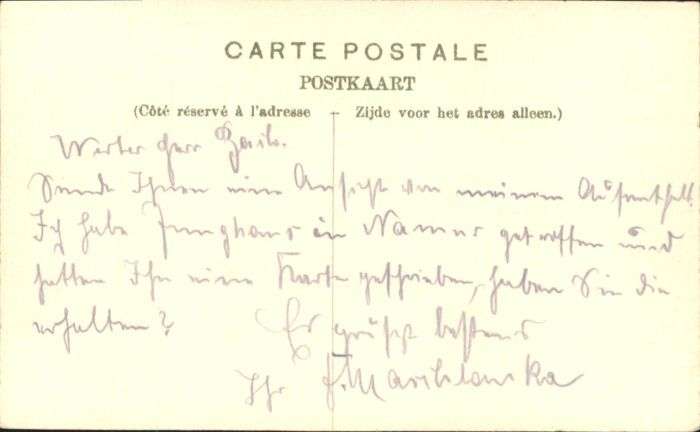 CARTE POSTALE
POSTKAART
(Côté réservé à l'adresse
Zijde voor het adres alleen.)
Werter Herr
Sende Ihnen eine Ansicht von meinem Aufenthalt.
Ich habe Junghans in Namur getroffen und
hatten Ihn eine Karte geschrieben, haben Sie die
erhalten?
Es grüßt bestens
Ihr